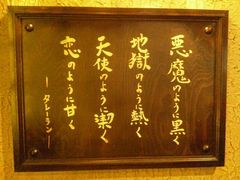 悪魔のように黒く
地獄のように熱く
天使のように潔く
恋のように甘く
―タレーラン―